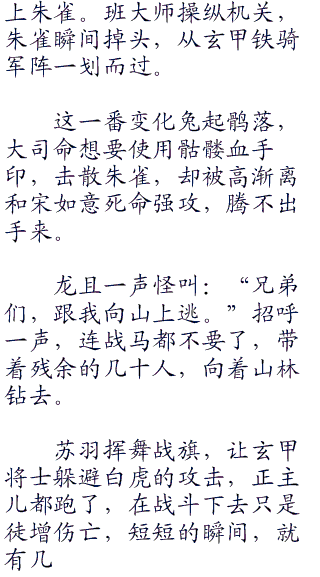 上朱雀。班大师操纵机关，
朱雀瞬间掉头，从玄甲铁骑
军阵一划而过。
这一番变化兔起鹘落，
大司命想要使用骷髅血手
印，击散朱雀，却被高渐离
和宋如意死命强攻，腾不出
手来。
龙且一声怪叫：“兄弟
们，跟我向山上逃。”招呼
一声，连战马都不要了，带
着残余的几十人，向着山林
钻去。
苏羽挥舞战旗，让玄甲
将士躲避白虎的攻击，正主
儿都跑了，在战斗下去只是
徒增伤亡，短短的瞬间，就
有几